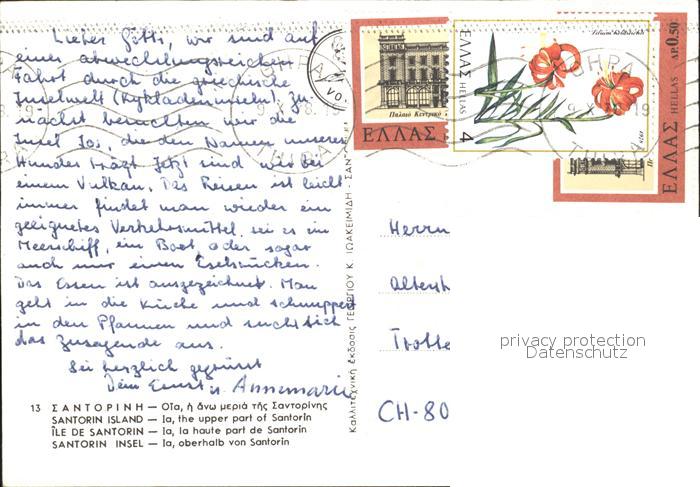 Lieber Götti, wir sind auf
einer abwechslungsreichen
Fahrt durch die griechische
Inselwelt (Kykladeninseln). Zu-
nächst besuchten wir die
Insel Ios, die den Namen unseres
Hundes trägt. Jetzt sind wir bei
einem Vulkan. Das Reisen ist leicht
immer findet man wieder ein
geeignetes Verkehrsmittel, sei es ein
Meerschiff, ein Boot, oder sogar
auch nur einen Eselsrücken.
Das Essen ist ausgezeichnet. Man
geht in die Küche und schnuppert
in den Pfannen und sucht sich
das Zusagende aus.
Sei herzlich gegrüsst
Dein Ernst u. Annemarie
13 ΣΑΝΤΟΡΙΝΗ — Οἴα, ἡ ἄνω μεριά τῆς Σαντορίνης
SANTORIN ISLAND — Ia, the upper part of Santorin
ÎLE DE SANTORIN — Ia, la haute part de Santorin
SANTORIN INSEL — Ia, oberhalb von Santorin
Καλλιτεχνική Ἐκδοσις ΓΕΩΡΓΙΟΥ Κ. ΙΩΑΚΕΙΜΙΔΗ
Παλαιό Κεντρικό
ΕΛΛΑΣ
ΕΛΛΑΣ HELLAS 4
ΕΛΛΑΣ HELLAS ΔΡ. 0.50
ΘΗΡΑ
Herrn
Altenh
Trotte
CH-80
privacy protection
Datenschutz